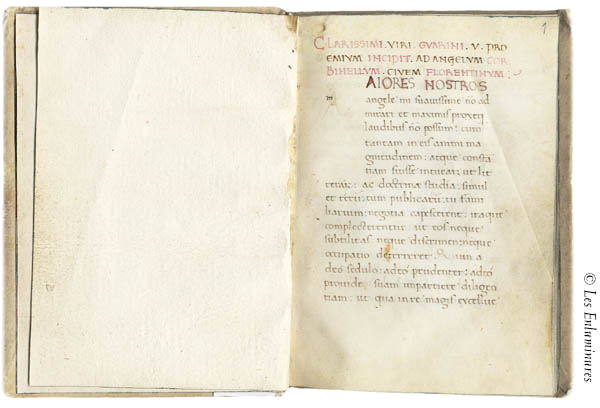 1
CLARISSIMI . VIRI . GVARINI . V . PRO
EMIVM INCIPIT . AD ANGELVM COR
BINELLVM . CIVEM FLORENTINVM :
AIORES NOSTROS
m angele mi suauissime nō ad
mirari et maximis
laudibus nō possum : cum
tantam in eis animi ma
gnitudinem : atque constā
tiam fuisse intuear : ut lit
terar; ac doctrinę studia : simul
et rerū : tum publicarū tū fami
liarium : negotia capescerent : itaque
complecterentur ut eos neque
subtilitas neque discrimen neque
occupatio deterreret . Quin a
deo sedulo : adeo prudenter : adeo
prouide suam impartiere diligen
tiam : ut qua in re magis excelluit
© Les Enluminures